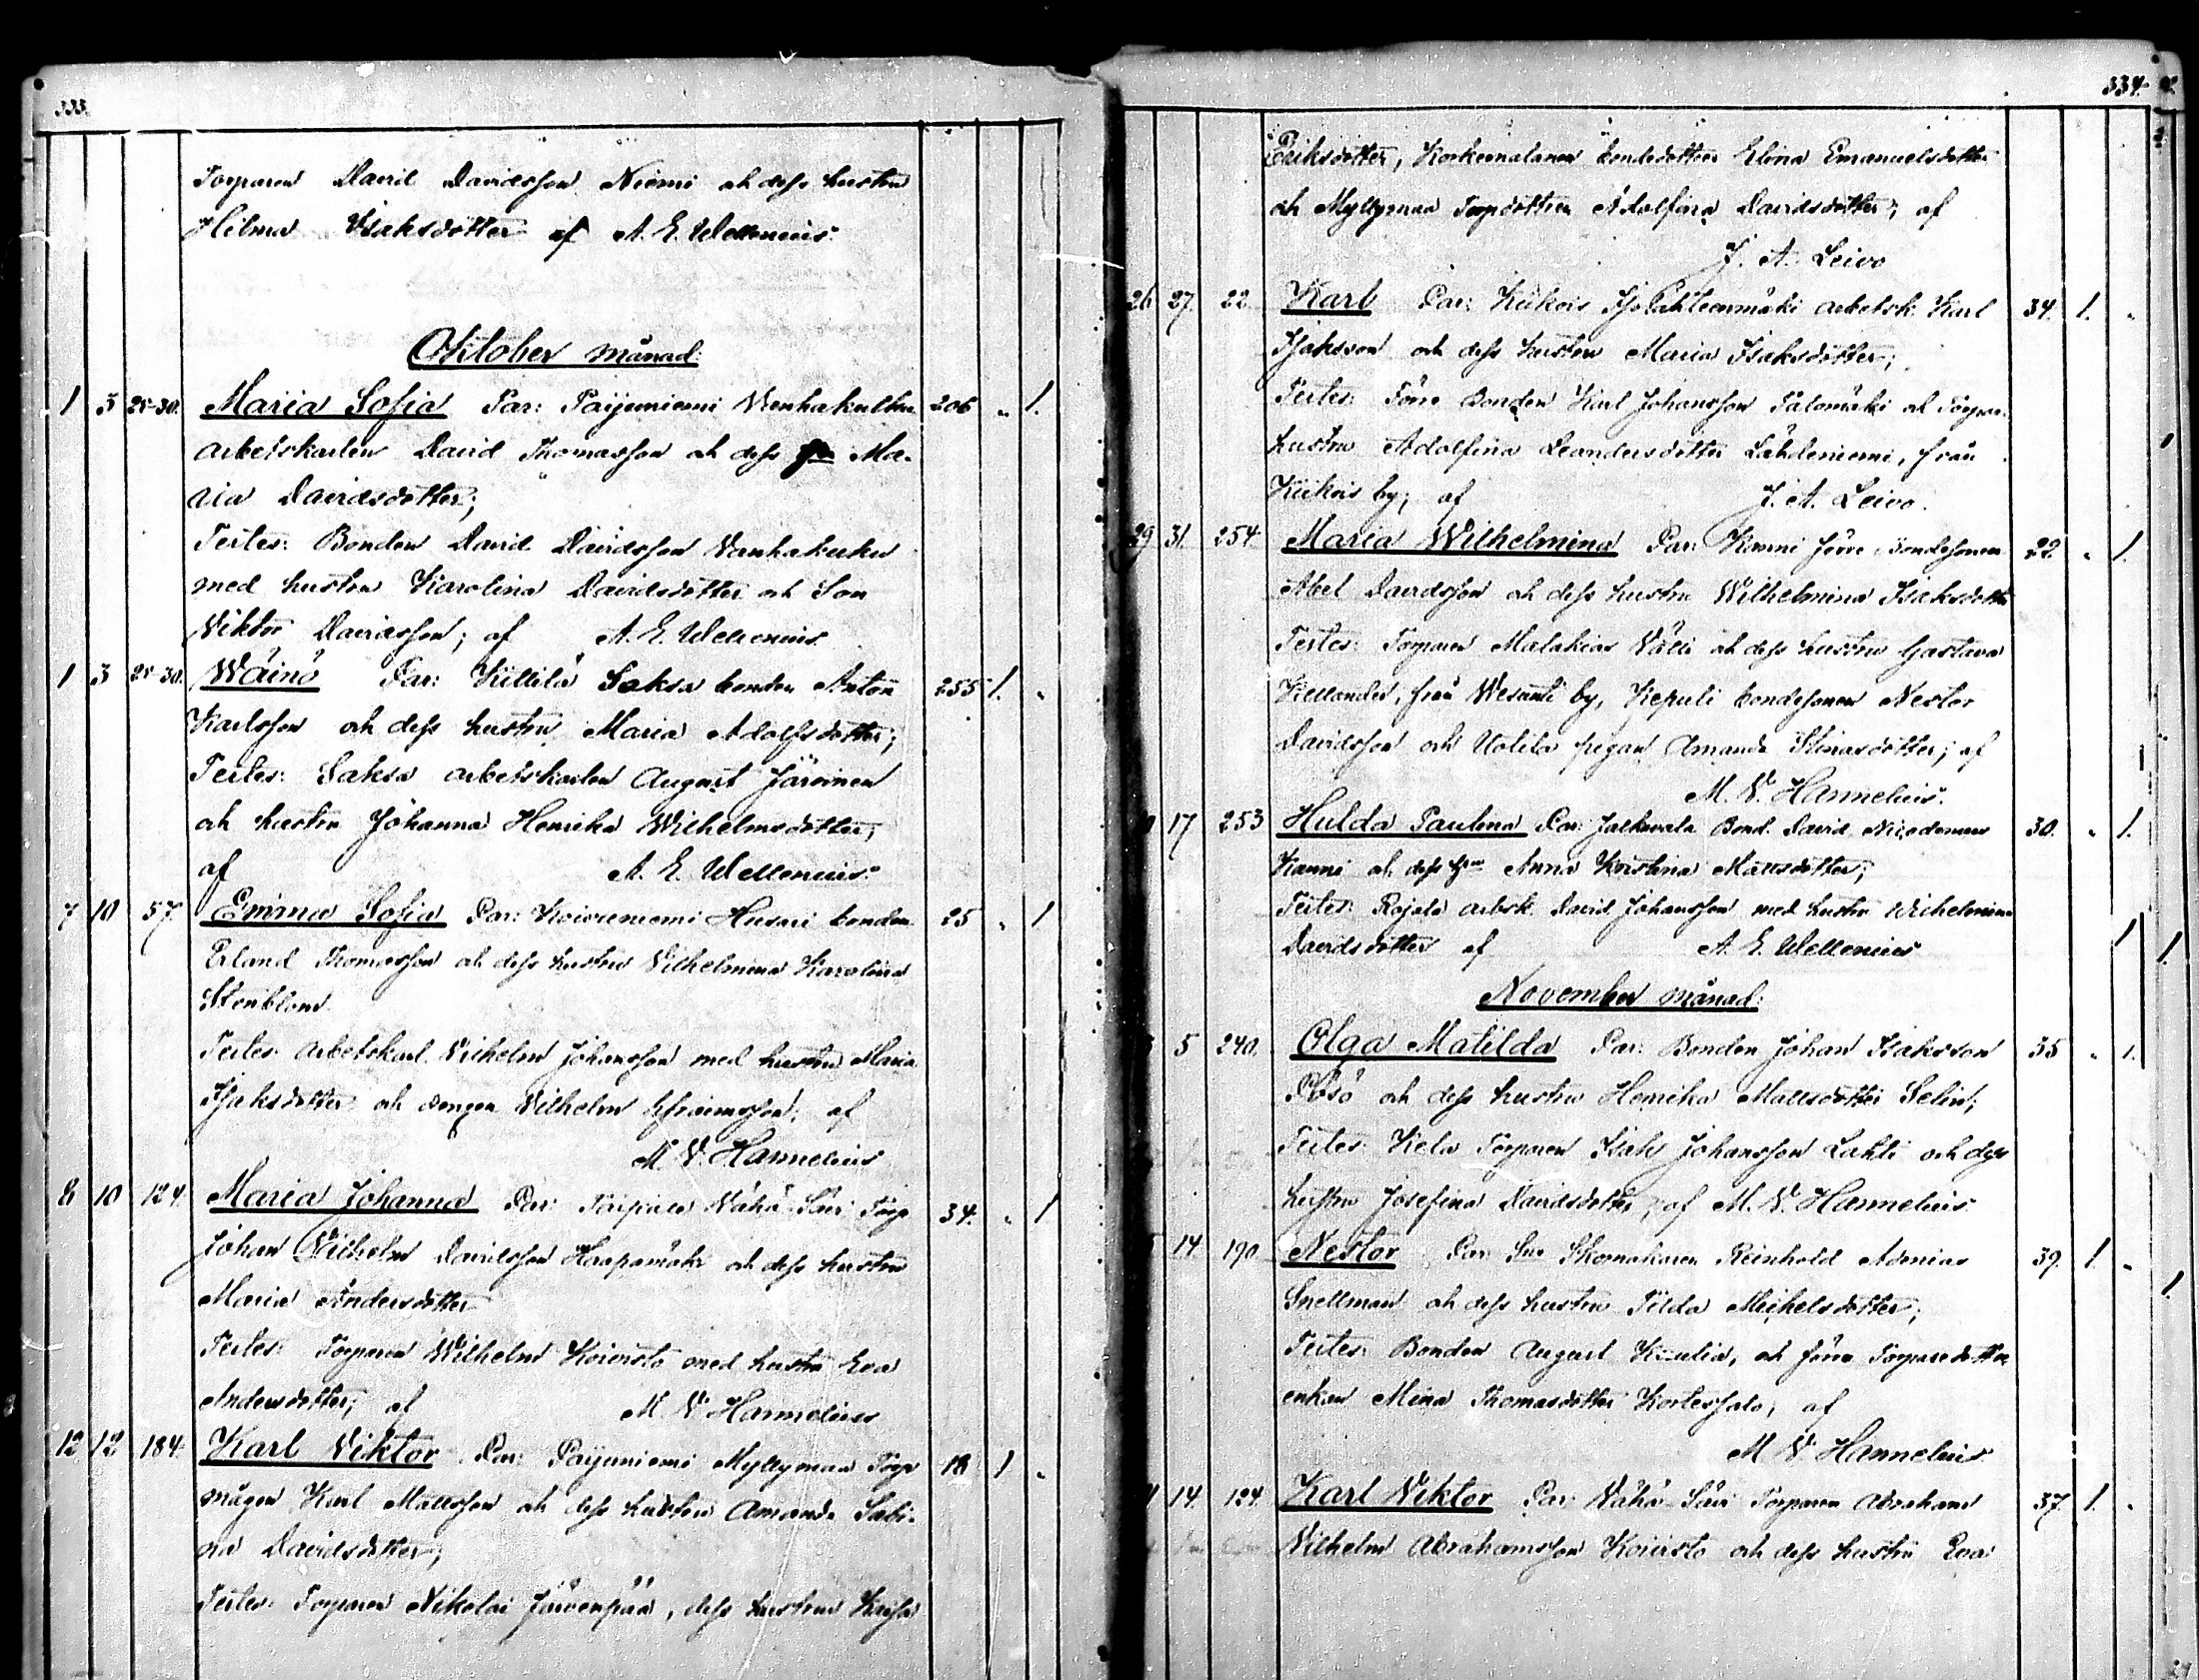 333.
Torparen David Davidsson Niemi och dess hustru
Hilma Isaksdotter af A. E. Wellenius.
Oktober månad:
1 3 25-30. Maria Sofia Par: Paijuniemi 206 " 1.
arbetskarlen David Thomasson och dess Ma-
ria Davidsdotter;
Testes: Bonden David Davidsson Vanhakuku
med hustru Karolina Davidsdotter och Son
Viktor Davidsson; af A. E. Wellenius
1 3 25-30. Wäinö Par: Killilä Saksa bonden Anton 255 1. "
Karlsson och dess hustru Maria Adolfsdotter;
Testes: Saksa arbetskarlen August Järvinen
och hustru Johanna Henrika Wilhelmsdotter;
af A. E. Wellenius.
7 10 57. Emma Sofia Par: Koivuniemi Husari bonden 25 " 1
Erland Thomasson och dess hustru Vilhelmina Karolina
Stenblom
Testes: Arbetskarl. Vilhelm Johansson med hustru Maria
Isaksdotter och Vilhelm Efraimsson; af
M. V. Hannelius
8 10 124. Maria Johanna Par: Vähä Säri Torp 34. " 1
Johan Vilhelm Davidsson Haapamäki och dess hustru
Maria Andersdotter
Testes: Torparen Wilhelm Koivisto med hustru Eva
Andersdotter; af M. V. Hannelius
12 12 184. Karl Viktor Par: Paijuniemi Myllymaa Torp 18 1 "
mågen Karl Mattsson och dess hustru Amanda Sabi-
na Davidsdotter;
Testes: Torparen Nikolai Järvenpää, dess hustru Kajsa
334.
Eriksdotter, bondedotter Elina Emanuelsdotter
och Myllymaa Torpdottren Adolfina Davidsdotter; af
J. A. Leivo
26 27. 22. Karl Par: Kiikois arbetsk. Karl 34. 1. "
Isaksson och dess hustru Maria Isaksdotter;
Testes: Förre Bonden Karl Johansson och Torpare
hustru Adolfina Leandersdotter Lähdeniemi, från
Kiikois by; af J. A. Leivo.
29 31. 254. Maria Wilhelmina Par: Kanni Jerre Bondesonen 22. " 1.
Abel Davidsson och dess hustru Wilhelmina Isaksdotter
Testes: Torparen Malakias Välli och dess hustru Gustava
Kellander, från Wesunti by, Kepuli bondesonen Nestor
Davidsson och pigan Amanda Stinasdotter; af
M. V. Hannelius.
17 253 Hulda Paulina Par: Jalkavala Bond. David Nicodemus 30. " 1.
Kanni och dess Anna Kristina Mattsdotter;
Testes: Rajala arbsk. David Johansson med hustru Wilhelmina
Davidsdotter af A. E. Wellenius
November månad:
5 240. Olga Matilda Par: Bonden Johan Isaksson 35 " 1.
Pösö och dess hustru Henrika Mattsdotter Selin;
Testes: Kela Torparen Isak Johansson Lahti och dess
hustru Josefina Davidsdotter; af M. V. Hannelius
14. 190. Nestor Par: Skomakaren Reinhold Adenias 39. 1. "
Snellman och dess hustru Tilda Michelsdotter;
Testes: Bonden August och förre Torparedotter
enkan Mina Thomasdotter; af
M. V. Hannelius
14. 124. Karl Viktor Par: Vähä Säri Torparen Abraham 37. 1. "
Vilhelm Abrahamsson Koivisto och dess hustru Eva